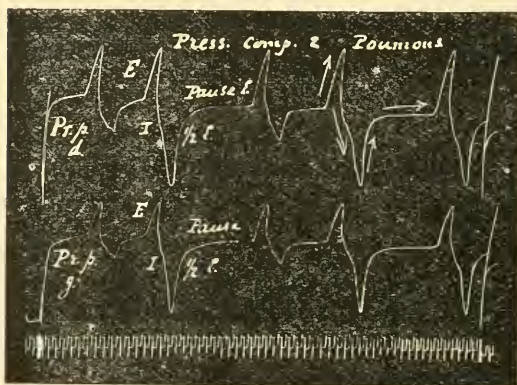 Press. Comp. 2 Poumons
E
Pause E.
Pr. p. d
I
½ E.
E
Pause
Pr. p. g.
I
½ E.